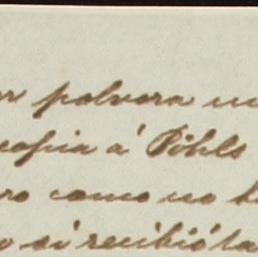 polvora
copia á Pöhls
ro como no
o si recibió la